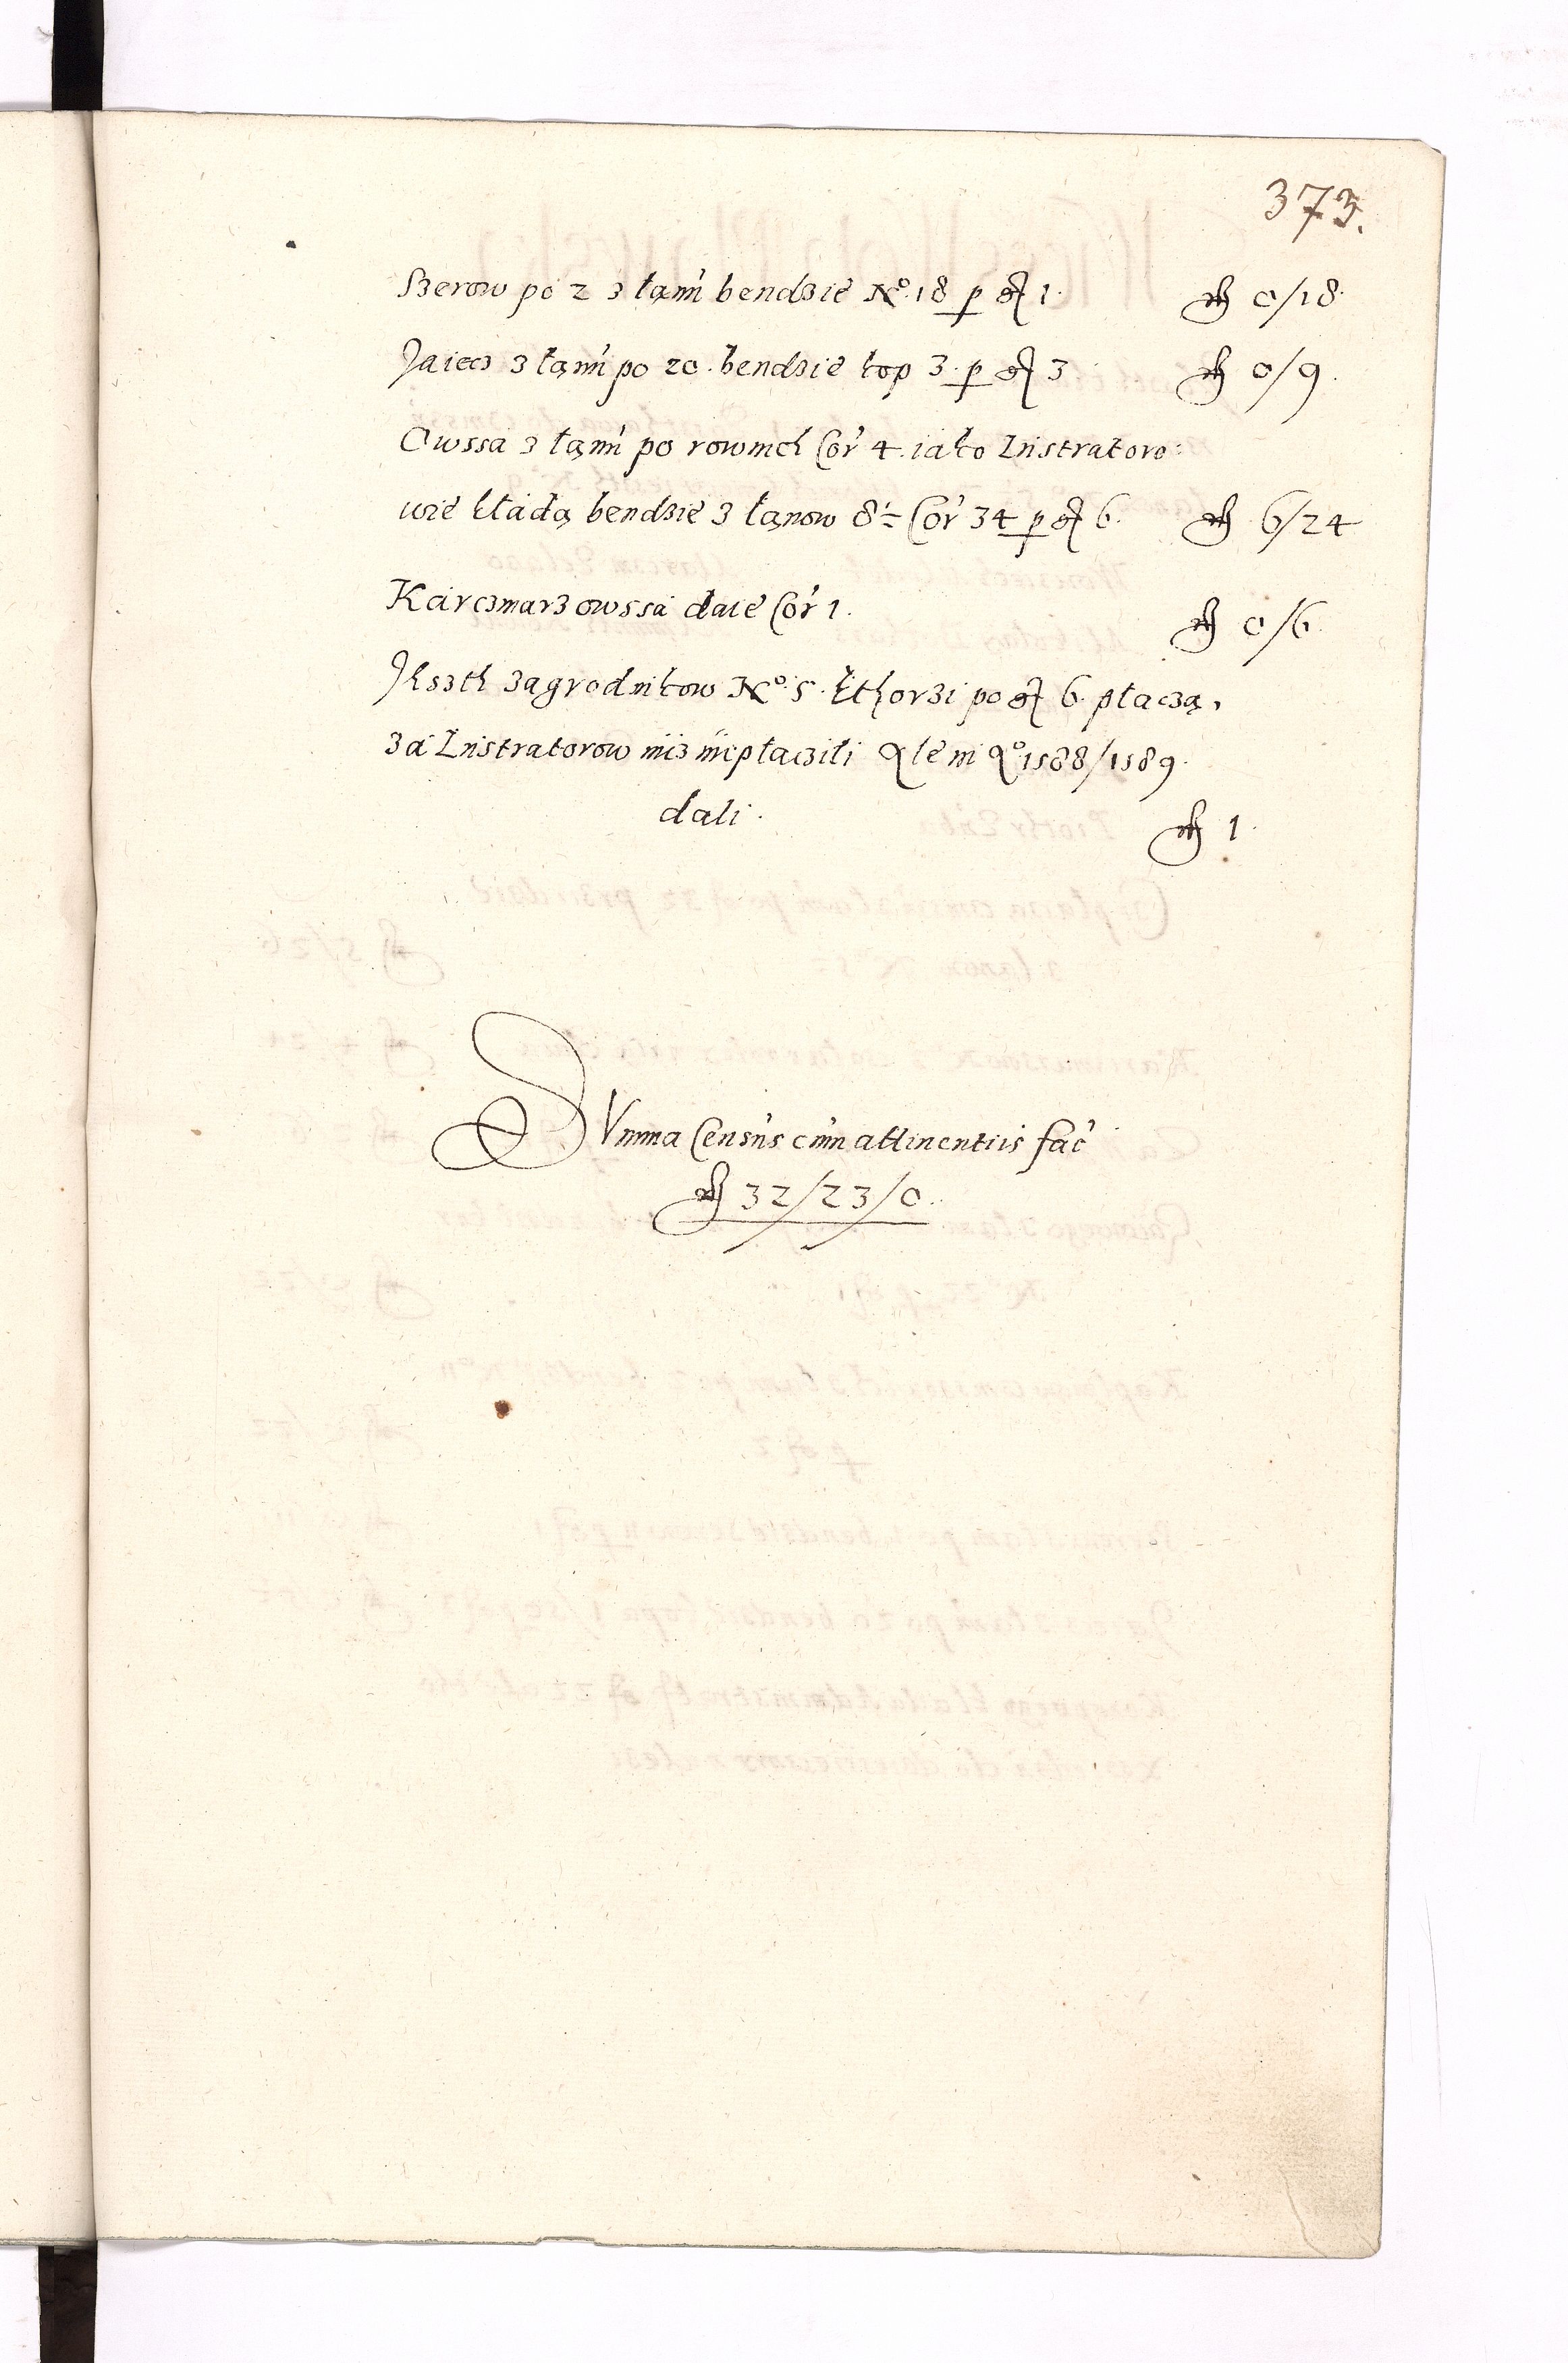 373.
Szerow po 2 z łanu bendzie No 18 p gr 1. fl 0/18.
Jaiecz z łanu po 20. bendzie kop 3. p gr 3 fl 0/9.
Owssa z łanu po rownich Cor 4. iako Lustratoro
wie kładą bendzie z łanow 8½ Cor 34 p gr 6. fl 6/24
Karczmarz owssa daie Cor 1. fl 0/6.
Jest zagrodnikow No 5. kthorzi po gr 6. płaczą,
za Lustratorow nicz nieplaczili Ale in Ao 1588/1589.
dali. fl 1.
SVmma Census cum attinentiis fac
fl 32/23/0.